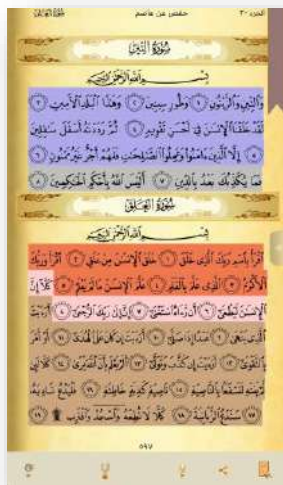 الجزء ٣٠
حفص عن عاصم
سُورَةُ التِّينِ
بِسْمِ اللَّهِ الرَّحْمَٰنِ الرَّحِيمِ
وَالتِّينِ وَالزَّيْتُونِ ١ وَطُورِ سِينِينَ ٢ وَهَٰذَا الْبَلَدِ الْأَمِينِ ٣
لَقَدْ خَلَقْنَا الْإِنسَٰنَ فِي أَحْسَنِ تَقْوِيمٍ ٤ ثُمَّ رَدَدْنَٰهُ أَسْفَلَ سَٰفِلِينَ
٥ إِلَّا الَّذِينَ ءَامَنُوا وَعَمِلُوا الصَّٰلِحَٰتِ فَلَهُمْ أَجْرٌ غَيْرُ مَمْنُونٍ ٦
فَمَا يُكَذِّبُكَ بَعْدُ بِالدِّينِ ٧ أَلَيْسَ اللَّهُ بِأَحْكَمِ الْحَٰكِمِينَ ٨
سُورَةُ الْعَلَقِ
بِسْمِ اللَّهِ الرَّحْمَٰنِ الرَّحِيمِ
اقْرَأْ بِاسْمِ رَبِّكَ الَّذِي خَلَقَ ١ خَلَقَ الْإِنسَٰنَ مِنْ عَلَقٍ ٢ اقْرَأْ وَرَبُّكَ
الْأَكْرَمُ ٣ الَّذِي عَلَّمَ بِالْقَلَمِ ٤ عَلَّمَ الْإِنسَٰنَ مَا لَمْ يَعْلَمْ ٥ كَلَّا إِنَّ
الْإِنسَٰنَ لَيَطْغَىٰ ٦ أَن رَّءَاهُ اسْتَغْنَىٰ ٧ إِنَّ إِلَىٰ رَبِّكَ الرُّجْعَىٰ ٨ أَرَءَيْتَ
الَّذِي يَنْهَىٰ ٩ عَبْدًا إِذَا صَلَّىٰ ١٠ أَرَءَيْتَ إِن كَانَ عَلَى الْهُدَىٰ ١١ أَوْ أَمَرَ
بِالتَّقْوَىٰ ١٢ أَرَءَيْتَ إِن كَذَّبَ وَتَوَلَّىٰ ١٣ أَلَمْ يَعْلَم بِأَنَّ اللَّهَ يَرَىٰ ١٤ كَلَّا
لَئِن لَّمْ يَنتَهِ لَنَسْفَعًا بِالنَّاصِيَةِ ١٥ نَاصِيَةٍ كَٰذِبَةٍ خَاطِئَةٍ ١٦ فَلْيَدْعُ نَادِيَهُ
١٧ سَنَدْعُ الزَّبَانِيَةَ ١٨ كَلَّا لَا تُطِعْهُ وَاسْجُدْ وَاقْتَرِب ۩ ١٩
٥٩٧